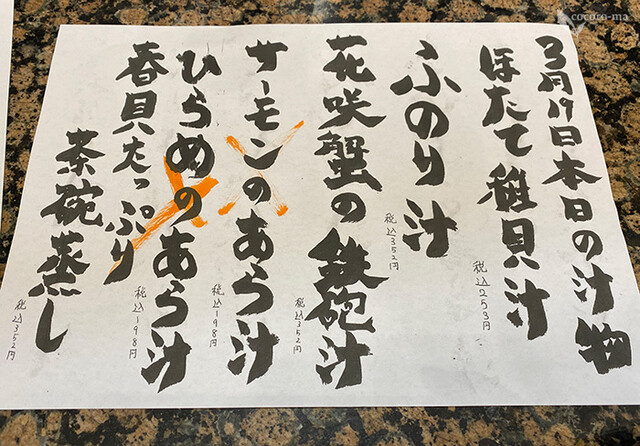 3月19日本日の汁物
ほたて稚貝汁
税込253円
ふのり汁
税込352円
花咲蟹の鉄砲汁
税込352円
サーモンのあら汁
税込198円
ひらめのあら汁
税込198円
春貝たっぷり
茶碗蒸し
税込352円
cocoro-ma